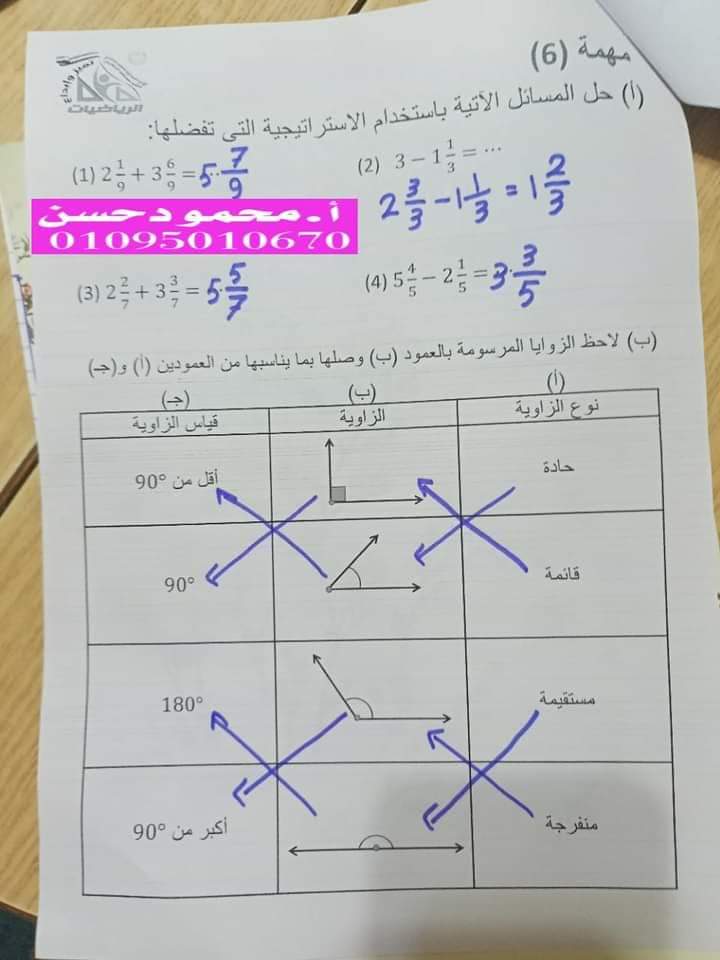 مهمة (6)
تميز وإبداع
الرياضيات
(أ) حل المسائل الآتية باستخدام الاستراتيجية التى تفضلها:
(1) 2 1/9 + 3 6/9 = 5 7/9
(2) 3 − 1 1/3 = ...
2 3/3 − 1 1/3 = 1 2/3
أ.محمود حسن
01095010670
(3) 2 2/7 + 3 3/7 = 5 5/7
(4) 5 4/5 − 2 1/5 = 3 3/5
(ب) لاحظ الزوايا المرسومة بالعمود (ب) وصلها بما يناسبها من العمودين (أ) و(جـ)
(أ) (ب) (جـ)
نوع الزاوية الزاوية قياس الزاوية
حادة أقل من 90°
قائمة 90°
مستقيمة 180°
منفرجة أكبر من 90°